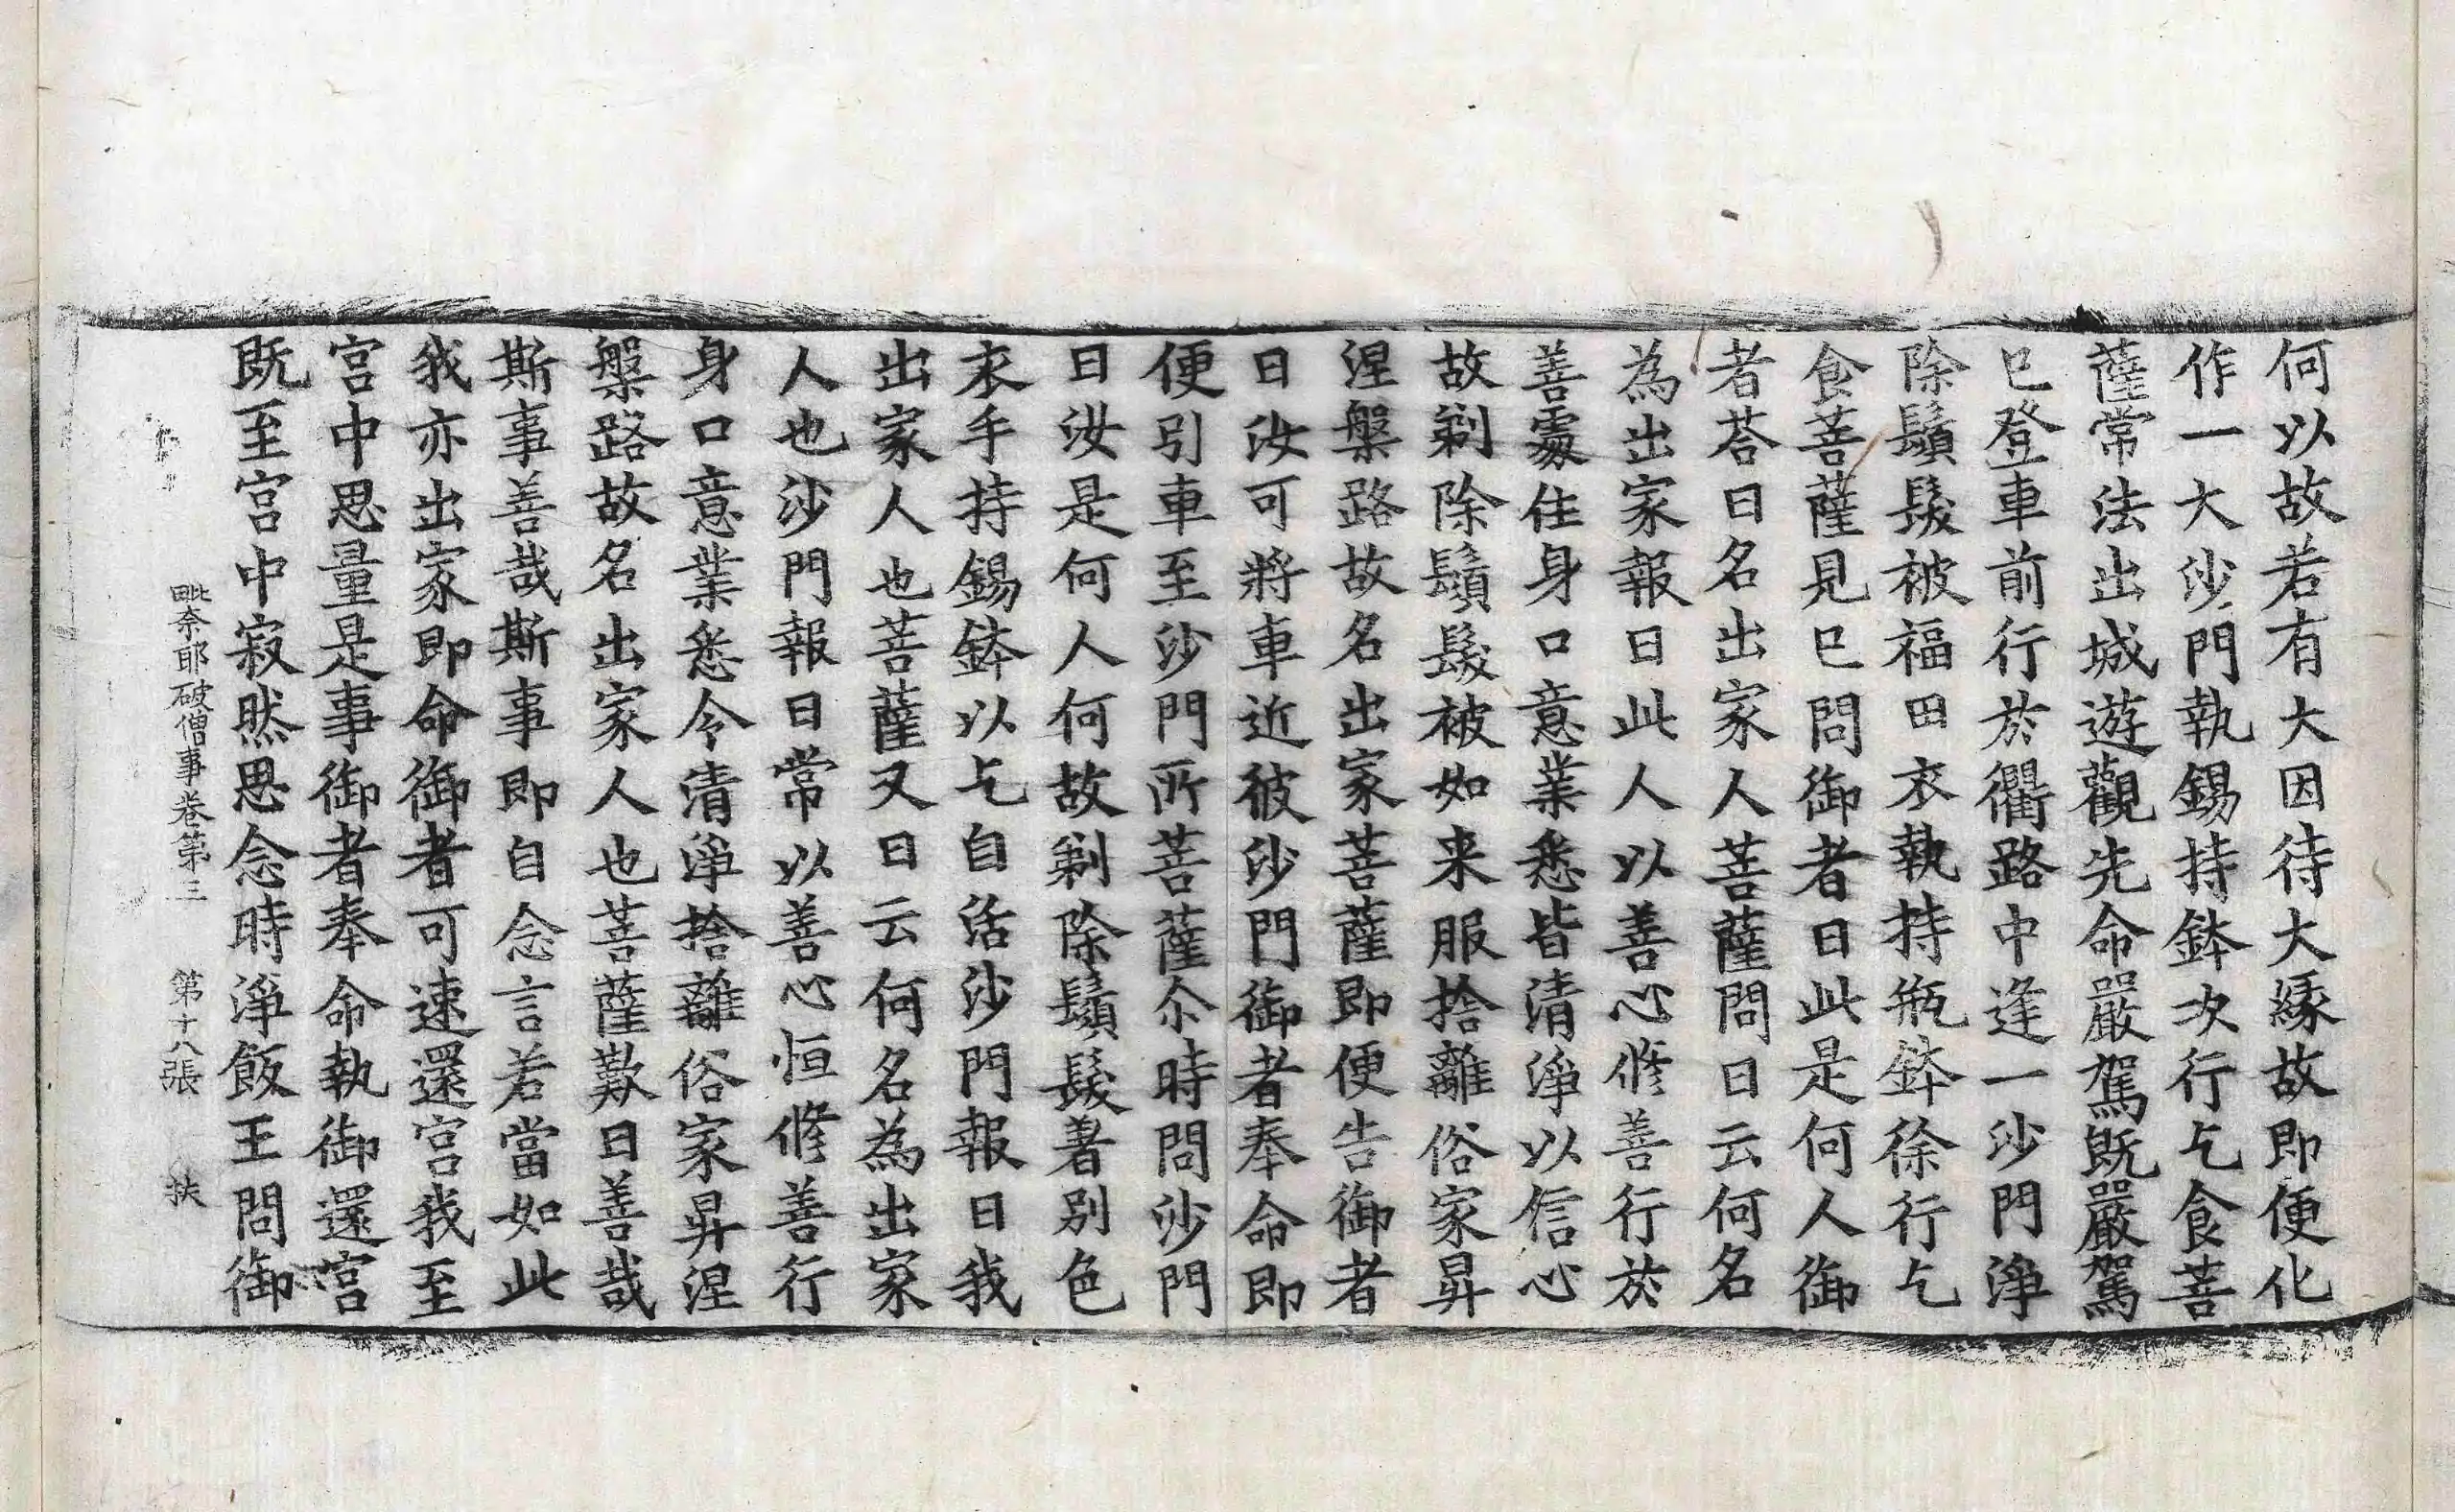 何以故若有大因待大縁故即便化
作一大沙門執錫持鉢次行乞食菩
薩常法出城遊觀先命嚴駕既嚴駕
已登車前行於衢路中逢一沙門淨
除鬚髮被福田衣執持瓶鉢徐行乞
食菩薩見已問御者曰此是何人御
者荅曰名出家人菩薩問曰云何名
為出家報曰此人以善心修善行於
善處住身口意業悉皆清淨以信心
故剃除鬚髮被如来服捨離俗家昇
涅槃路故名出家菩薩即便告御者
曰汝可將車近彼沙門御者奉命即
便引車至沙門所菩薩尒時問沙門
曰汝是何人何故剃除鬚髮著別色
衣手持錫鉢以乞自活沙門報曰我
出家人也菩薩又曰云何名為出家
人也沙門報曰常以善心恒修善行
身口意業悉令清淨捨離俗家昇涅
槃路故名出家人也菩薩歎曰善哉
斯事善哉斯事即自念言若當如此
我亦出家即命御者可速還宮我至
宮中思量是事御者奉命執御還宮
既至宮中寂然思念時淨飯王問御
毗奈耶破僧事卷第三 第十八張 扶